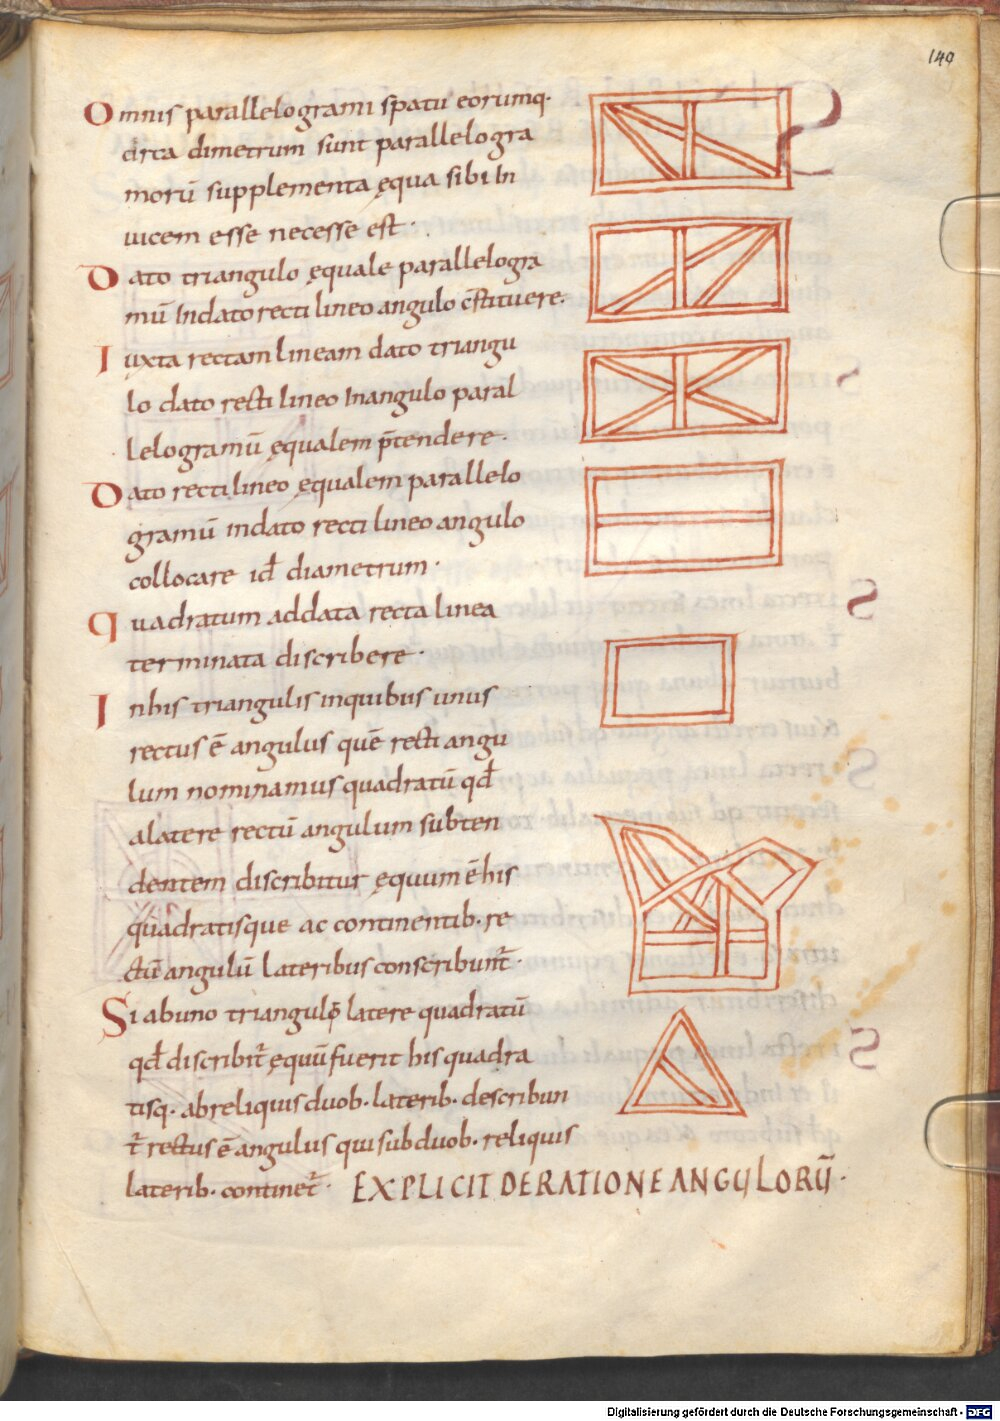 149
Omnis parallelogrami spatii eorumq·
circa dimetrum sunt parallelogra
morū supplementa ęqua sibi In
uicem esse necesse est·
Dato triangulo ęquale parallelogra
mū Indato recti lineo angulo c̄stituere·
Iuxta rectam lineam dato triangu
lo dato recti lineo Inangulo paral
lelogramū ęqualem p̄tendere·
Dato recti lineo ęqualem parallelo
gramū indato recti lineo angulo
collocare id̄ diametrum·
Quadratum addata recta linea
terminata discribere·
Inhis triangulis inquibus unus
rectus ē angulus quē recti angu
lum nominamus quadratū qd̄
alatere rectū angulum subten
dentem discribitur ęquum ē his
quadratisque ac continentib· re
ctū angulū lateribus conscribunt̄·
Si abuno trianguli latere quadratū
qd̄ discribit̄ ęquū fuerit his quadra
tisq· abreliquis duob· laterib· describun
t̄ rectus ē angulus qui sub duob· reliquis
laterib· continet̄· EXPLICIT DE RATIONE ANGULORŪ·
Digitalisierung gefördert durch die Deutsche Forschungsgemeinschaft - DFG